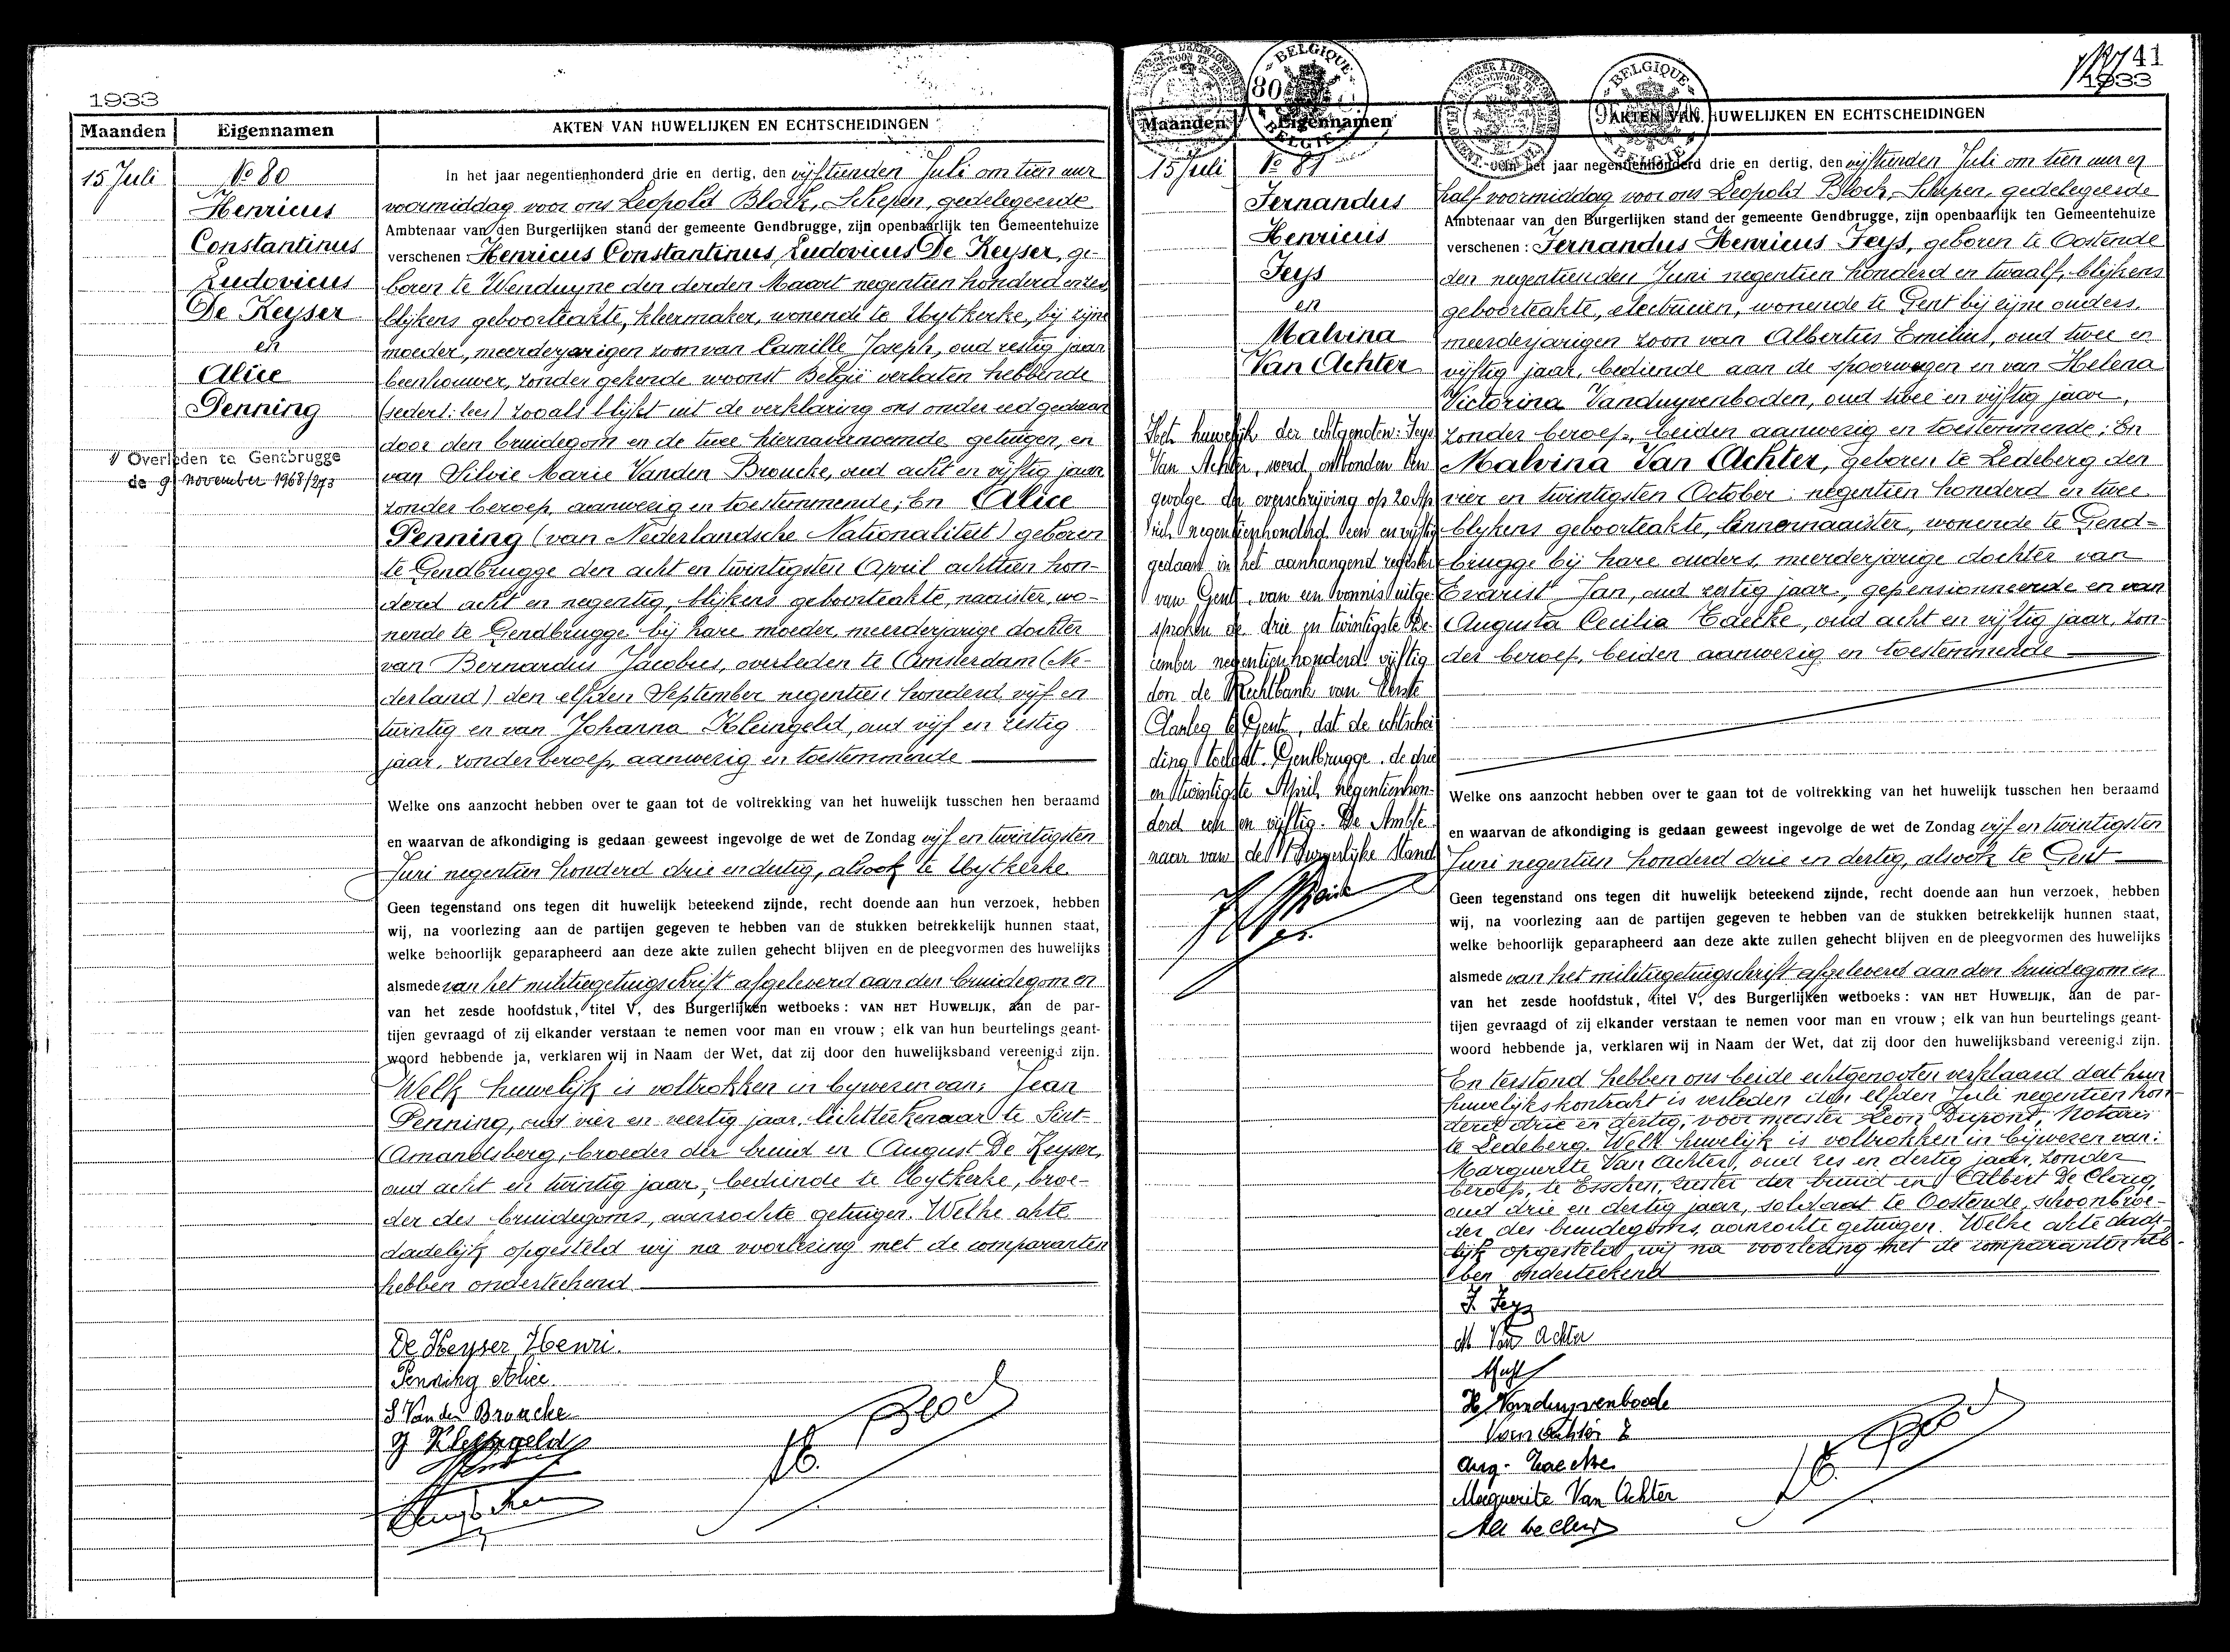 1933
Maanden Eigennamen AKTEN VAN HUWELIJKEN EN ECHTSCHEIDINGEN
15 Juli
No 80
Henricus
Constantinus
Ludovicus
De Keyser
en
Alice
Penning
Overleden te Gentbrugge
de 9 november 1968/273
In het jaar negentienhonderd drie en dertig, den vijftienden Juli om tien uur
voormiddag voor ons Leopold Block, Schepen, gedelegeerde
Ambtenaar van den Burgerlijken stand der gemeente Gendbrugge, zijn openbaarlijk ten Gemeentehuize
verschenen Henricus Constantinus Ludovicus De Keyser, ge-
boren te Wenduyne den derden Maart negentien honderd en zes,
blijkens geboorteakte, kleermaker, wonende te Uytkerke, bij zijne
moeder, meerderjarigen zoon van Camille Joseph, oud zestig jaar
beenhouwer, zonder gekende woonst België verlaten hebbende
(sedert: lees) zooals blijkt uit de verklaring ons onder eed gedaan
door den bruidegom en de twee hiernavernoemde getuigen, en
van Silvie Marie Vanden Broucke, oud acht en vijftig jaar
zonder beroep, aanwezig en toestemmende; En Alice
Penning (van Nederlandsche Nationaliteit) geboren
te Gendbrugge den acht en twintigsten April achttien hon-
derd acht en negentig, blijkens geboorteakte, naaister, wo-
nende te Gendbrugge bij hare moeder, meerderjarige dochter
van Bernardus Jacobus, overleden te Amsterdam (Ne-
derland) den elfden September negentien honderd vijf en
twintig en van Johanna Kleingeld, oud vijf en zestig
jaar, zonder beroep, aanwezig en toestemmende
Welke ons aanzocht hebben over te gaan tot de voltrekking van het huwelijk tusschen hen beraamd
en waarvan de afkondiging is gedaan geweest ingevolge de wet de Zondag vijf en twintigsten
Juni negentien honderd drie en dertig, alsook te Uytkerke
Geen tegenstand ons tegen dit huwelijk beteekend zijnde, recht doende aan hun verzoek, hebben
wij, na voorlezing aan de partijen gegeven te hebben van de stukken betrekkelijk hunnen staat,
welke behoorlijk geparapheerd aan deze akte zullen gehecht blijven en de pleegvormen des huwelijks
alsmede van het militiegetuigschrift afgeleverd aan den bruidegom en
van het zesde hoofdstuk, titel V, des Burgerlijken wetboeks: VAN HET HUWELIJK, aan de par-
tijen gevraagd of zij elkander verstaan te nemen voor man en vrouw; elk van hun beurtelings geant-
woord hebbende ja, verklaren wij in Naam der Wet, dat zij door den huwelijksband vereenigd zijn.
Welk huwelijk is voltrokken in bijwezen van: Jean
Penning, oud vier en veertig jaar, lichtteekenaar te Sint-
Amandsberg, broeder der bruid en August De Keyser,
oud acht en twintig jaar, bediende te Uytkerke, broe-
der des bruidegoms, aanzochte getuigen. Welke akte
dadelijk opgesteld wij na voorlezing met de comparanten
hebben onderteekend
De Keyser Henri.
Penning Alice.
S Van den Broucke
J Kleingeld
Block
80 BELGIQUE BELGIE
BELGIQUE BELGIE
41
1933
Maanden Eigennamen AKTEN VAN HUWELIJKEN EN ECHTSCHEIDINGEN
15 Juli
No 81
Fernandus
Henricus
Feys
en
Malvina
Van Achter
Het huwelijk der echtgenoten: Feys
Van Achter, werd ontbonden ten
gevolge der overschrijving op 20 Ap
ril negentienhonderd een en vijftig
gedaan in het aanhangend register
van Gent, van een vonnis uitge-
sproken de drie en twintigste De-
cember negentienhonderd vijftig
door de Rechtbank van Eerste
Aanleg te Gent, dat de echtschei
ding toelaat. Gentbrugge, de drie
en twintigste April negentienhon-
derd een en vijftig. De Ambte
naar van de Burgerlijke Stand
In het jaar negentienhonderd drie en dertig, den vijftienden Juli om tien uur en
half voormiddag voor ons Leopold Block, Schepen, gedelegeerde
Ambtenaar van den Burgerlijken stand der gemeente Gendbrugge, zijn openbaarlijk ten Gemeentehuize
verschenen: Fernandus Henricus Feys, geboren te Oostende
den negentienden Juni negentien honderd en twaalf, blijkens
geboorteakte, electricien, wonende te Gent bij zijne ouders,
meerderjarigen zoon van Albertus Emilius, oud twee en
vijftig jaar, bediende aan de spoorwegen en van Helena
Victorina Vanduyvenboden, oud twee en vijftig jaar,
zonder beroep, beiden aanwezig en toestemmende; En
Malvina Van Achter, geboren te Ledeberg den
vier en twintigsten October negentien honderd en twee
blijkens geboorteakte, linnennaaister, wonende te Gend-
brugge bij hare ouders, meerderjarige dochter van
Evarist Jan, oud zestig jaar, gepensionneerde en van
Augusta Cecilia Taecke, oud acht en vijftig jaar, zon-
der beroep, beiden aanwezig en toestemmende
Welke ons aanzocht hebben over te gaan tot de voltrekking van het huwelijk tusschen hen beraamd
en waarvan de afkondiging is gedaan geweest ingevolge de wet de Zondag vijf en twintigsten
Juni negentien honderd drie en dertig, alsook te Gent
Geen tegenstand ons tegen dit huwelijk beteekend zijnde, recht doende aan hun verzoek, hebben
wij, na voorlezing aan de partijen gegeven te hebben van de stukken betrekkelijk hunnen staat,
welke behoorlijk geparapheerd aan deze akte zullen gehecht blijven en de pleegvormen des huwelijks
alsmede van het militiegetuigschrift afgeleverd aan den bruidegom en
van het zesde hoofdstuk, titel V, des Burgerlijken wetboeks: VAN HET HUWELIJK, aan de par-
tijen gevraagd of zij elkander verstaan te nemen voor man en vrouw; elk van hun beurtelings geant-
woord hebbende ja, verklaren wij in Naam der Wet, dat zij door den huwelijksband vereenigd zijn.
En terstond hebben ons beide echtgenooten verklaard dat hun
huwelijkskontrakt is verleden den elfden Juli negentien hon-
derd drie en dertig, voor meester Leon Dupont, Notaris
te Ledeberg. Welk huwelijk is voltrokken in bijwezen van:
Marguerite Van Achter, oud zes en dertig jaar, zonder
beroep, te Esschen, zuster der bruid en Albert De Clercq,
oud drie en dertig jaar, soldaat te Oostende, schoonbroe-
der des bruidegoms, aanzochte getuigen. Welke akte dade-
lijk opgesteld wij na voorlezing met de comparanten heb-
ben onderteekend
F. Feys
M Van Achter
H. Vanduyvenboode
Van Achter E
Aug. Taecke
Marguerite Van Achter
Block